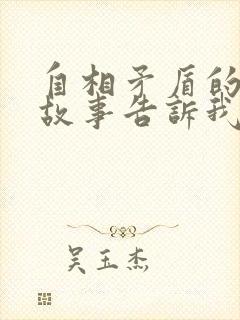 自相矛盾的
故事告訴我
吴玉杰